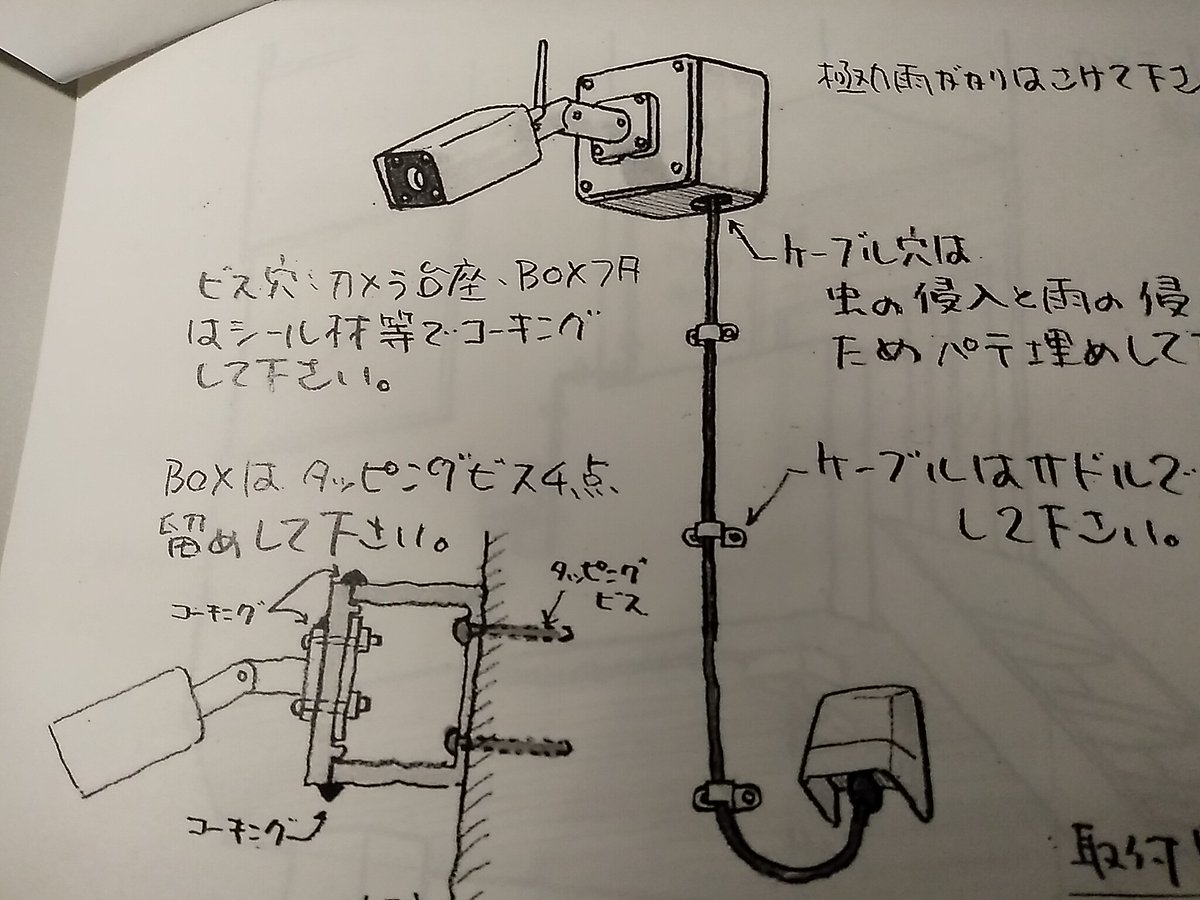 極力雨がかりはさけて下さ
ケーブル穴は
虫の侵入と雨の侵
ためパテ埋めして下
ビス穴、カメラ台座、BOXフタ
はシール材等でコーキング
して下さい。
BOXは タッピングビス4点
留めして下さい。
ケーブルはサドルで
して下さい。
タッピング
ビス
コーキング
コーキング
取付